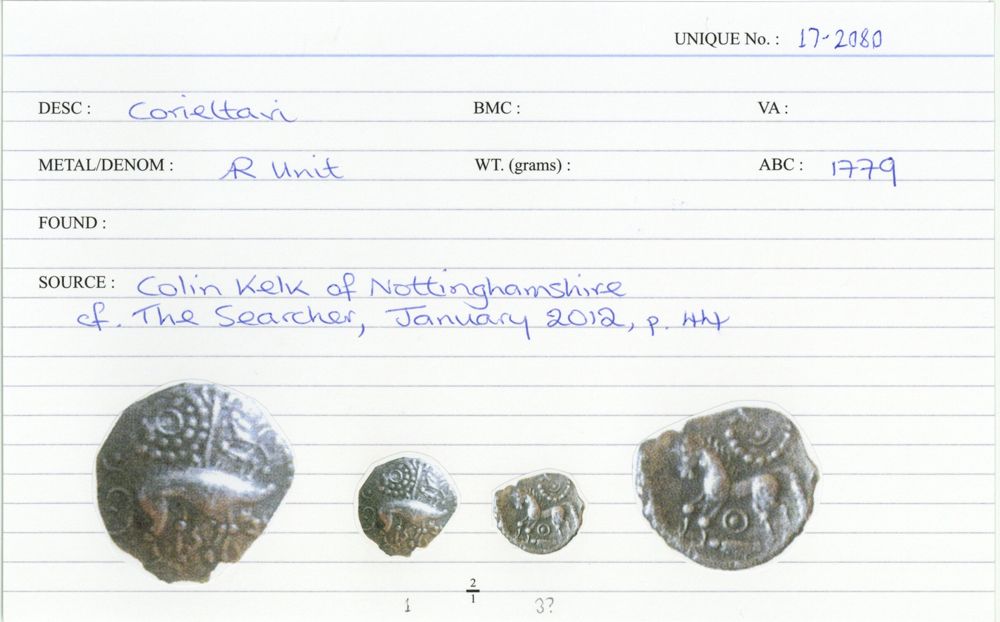 UNIQUE No. : 17-2080
DESC : Corieltavi BMC : VA :
METAL/DENOM : AR Unit WT. (grams) : ABC : 1779
FOUND :
SOURCE : Colin Kelk of Nottinghamshire
cf. The Searcher, January 2012, p. 44
2
1
1 3?